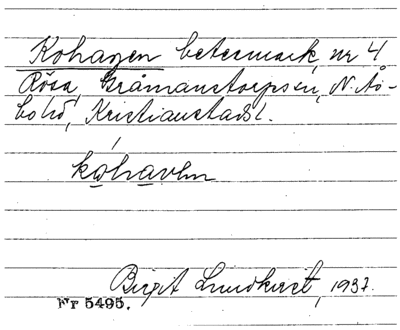 Kohagen betesmark, nr 4
Rösa, Gråmanstorps sn, N. Ås-
bo hd, Kristianstads l.
kohavhn
Birgit Lundkvist, 1937.
Nr 5495.